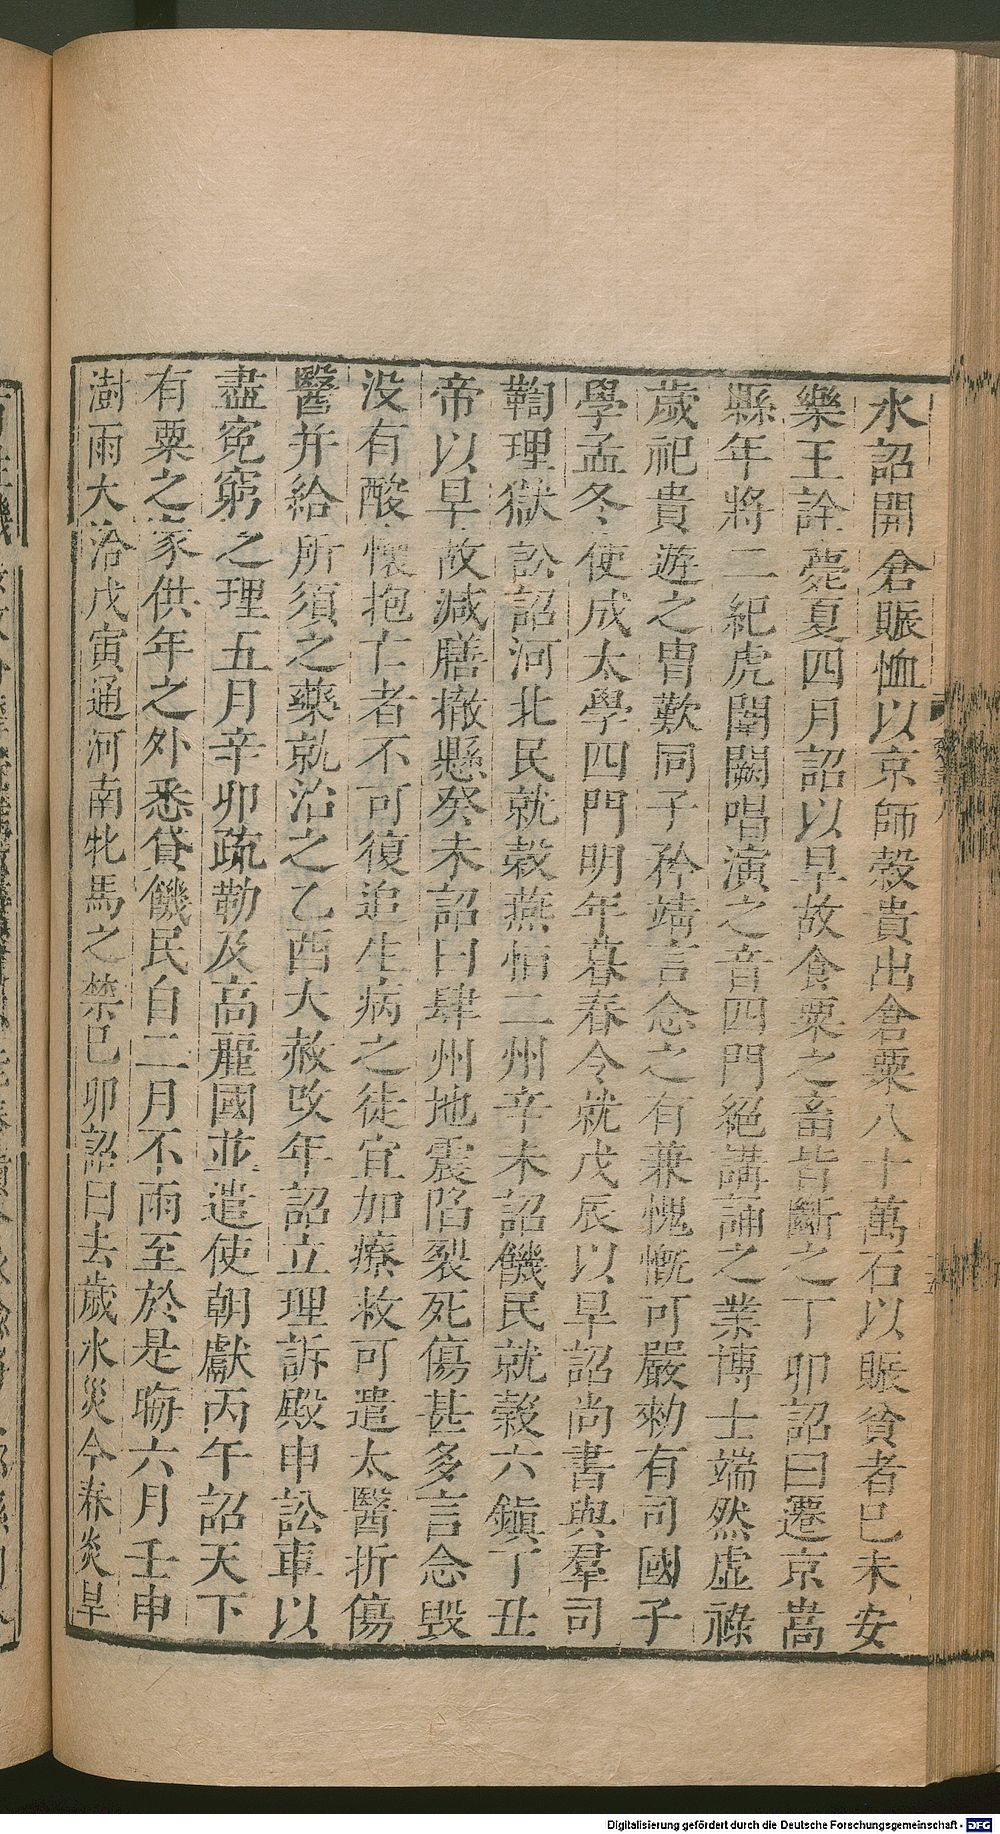 水詔開倉賑恤以京師穀貴出倉粟八十萬石以賑貧者巳未安
樂王詮薨夏四月詔以旱故食粟之畜皆斷之丁卯詔曰遷京嵩
縣年將二紀虎闈闕唱演之音四門絕講誦之業博士端然虛祿
歲祀貴遊之胄歎同子矜靖言念之有兼愧慨可嚴勑有司國子
學孟冬使成太學四門明年暮春令就戊辰以旱詔尚書與羣司
鞫理獄訟詔河北民就穀燕恒二州辛未詔饑民就穀六鎮丁丑
帝以旱故減膳撤懸癸未詔曰肆州地震陷裂死傷甚多言念毀
没有酸懷抱亡者不可復追生病之徒宜加療救可遣太醫折傷
醫并給所須之藥就治之乙酉大赦改年詔立理訴殿申訟車以
盡寃窮之理五月辛卯疏勒及高麗國並遣使朝獻丙午詔天下
有粟之家供年之外悉貸饑民自二月不雨至於是晦六月壬申
澍雨大洽戊寅通河南牝馬之禁巳卯詔曰去歲水災今春炎旱
Digitalisierung gefördert durch die Deutsche Forschungsgemeinschaft - DFG